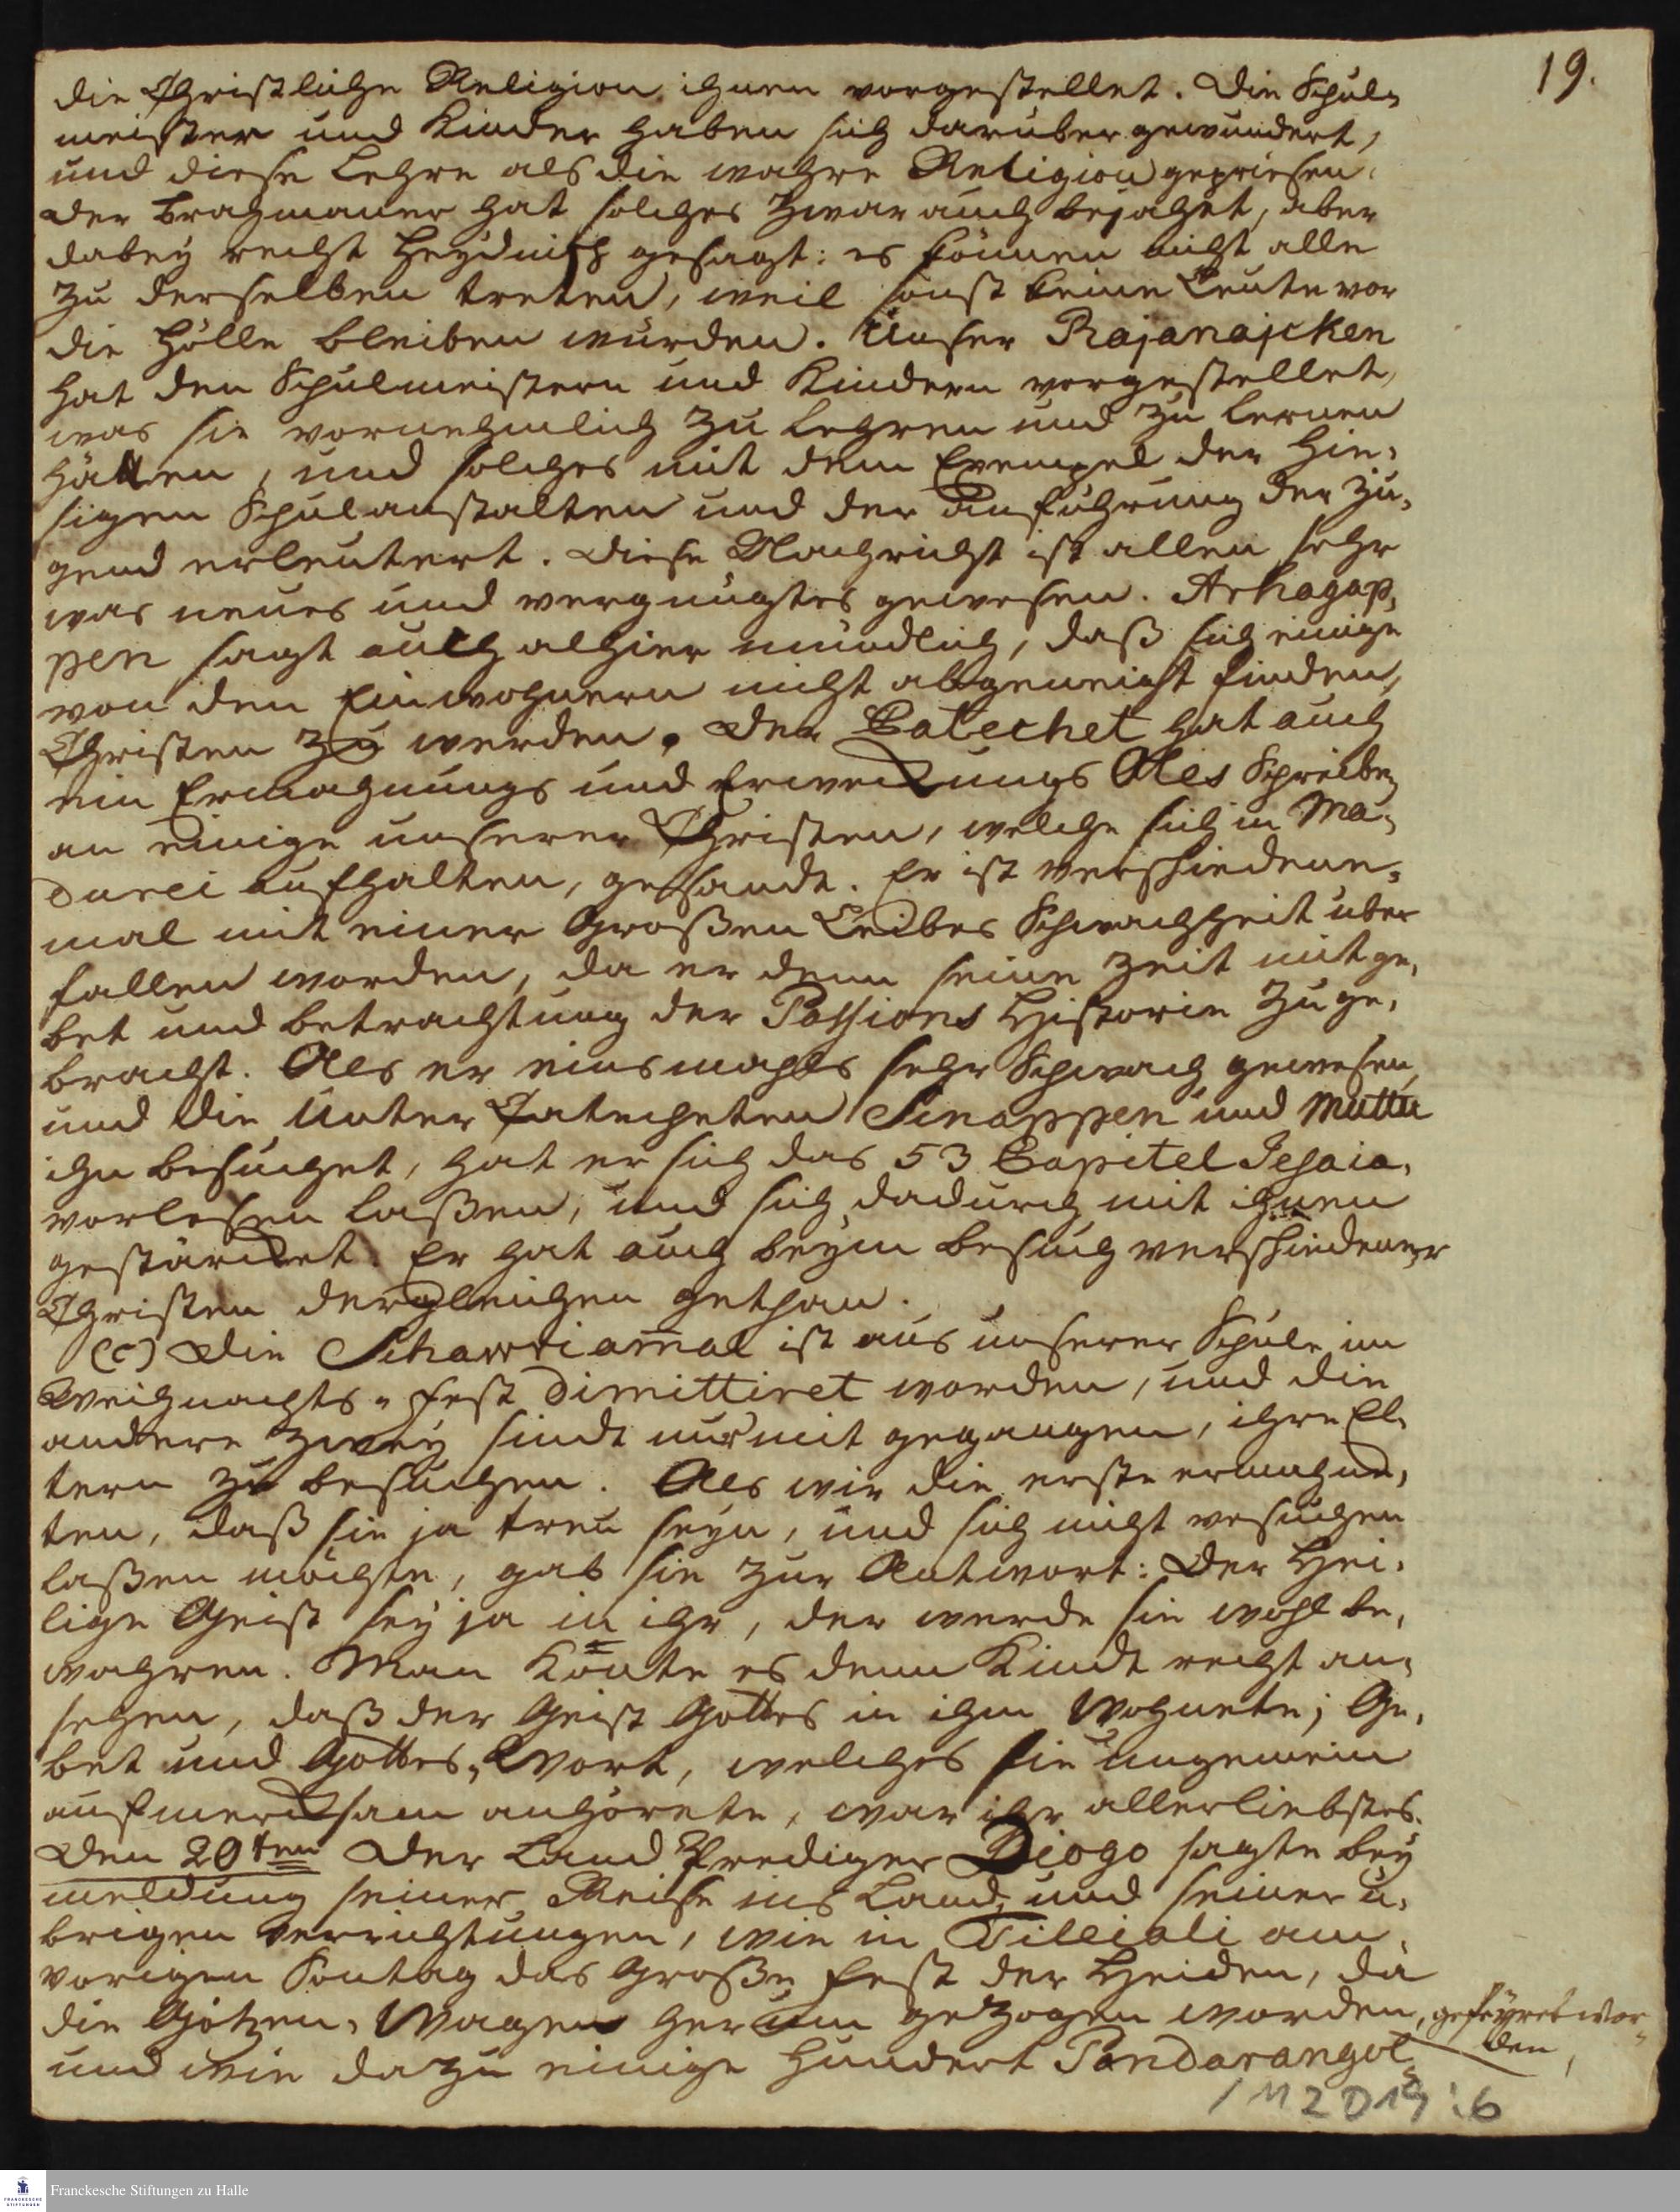 19.
die Christliche Religion ihnen vorgestellet. Die Schul-
meister und Kinder haben sich darüber gewundert,
und diese Lehre als die wahre Religion gepriesen.
Der Bramaner hat solches zwar auch bejahet, aber
dabey recht Heydnisch gesagt: es können nicht alle
zu derselben treten, weil sonst keine Leute vor
die Hölle bleiben würden. Unser Rajanajcken
hat den Schulmeistern und Kindern vorgestellet,
was sie vornehmlich zu lehren und zu lernen
hätten, und solches mit dem Exempel der hie-
sigen Schulanstalten und der Anführung der Ju-
gend erleutert. Diese Nachricht ist allen sehr
was neues und vergnügtes gewesen. Arhagap-
pen sagt auch alhier mündlich, daß sich einige
von den Einwohnern nicht abgeneigt finden,
Christen zu werden. Der Catechet hat auch
ein Ermahnungs und Erweckungs Oles Schreiben
an einige unserer Christen, welche sich in Ma-
durei aufhalten, gesandt. Er ist verschiedene-
mal mit einer Großen Leibes Schwachheit über
fallen worden, da er denn seine Zeit mit ge-
bet und betrachtung der Passions Historie zuge-
bracht. Als er einsmahls sehr Schwach gewesen,
und die Unter Catecheten Sinappen und Muttu
ihn besuchet, hat er sich das 53 Capitel Jesaia,
vorlesen laßen, und sich dadurch mit ihnen
gestärcket. Er hat auch beym besuch verschiedener
Christen dergleichen gethan.
(c) Die Schawriam̄al ist aus unserer Schule im
Weihnachts-Fest dimittiret worden, und die
andere zwey sindt nur mit gegangen, ihre El-
tern zu besuchen. Als wir die erste ermahne-
ten, daß sie ja treu seyn, und sich nicht versuchen
laßen möchte, gab sie zur Antwort: Der Hei-
lige Geist sey ja in ihr, der werde sie wohl be-
wahren. Man konte es dem Kindt recht an-
sehen, daß der Geist Gottes in ihm wohnete; Ge-
bet und Gottes-Wort, welches sie ungemein
aufmercksam anhörete, war ihr allerliebstes.
Den 20ten Der Land Prediger Diogo sagte bey
meldung seiner Reise ins Land, und seiner ü-
brigen verrichtungen, wie in Tilliali am
vorigen Sontag das Große Fest der Heiden, da
die Götzen-Wagen herum gezogen worden, gefeyret wor-
den,
und wie dazu einige Hundert Pandarangol-
1 M 2 D 19 : 6
Franckesche Stiftungen zu Halle